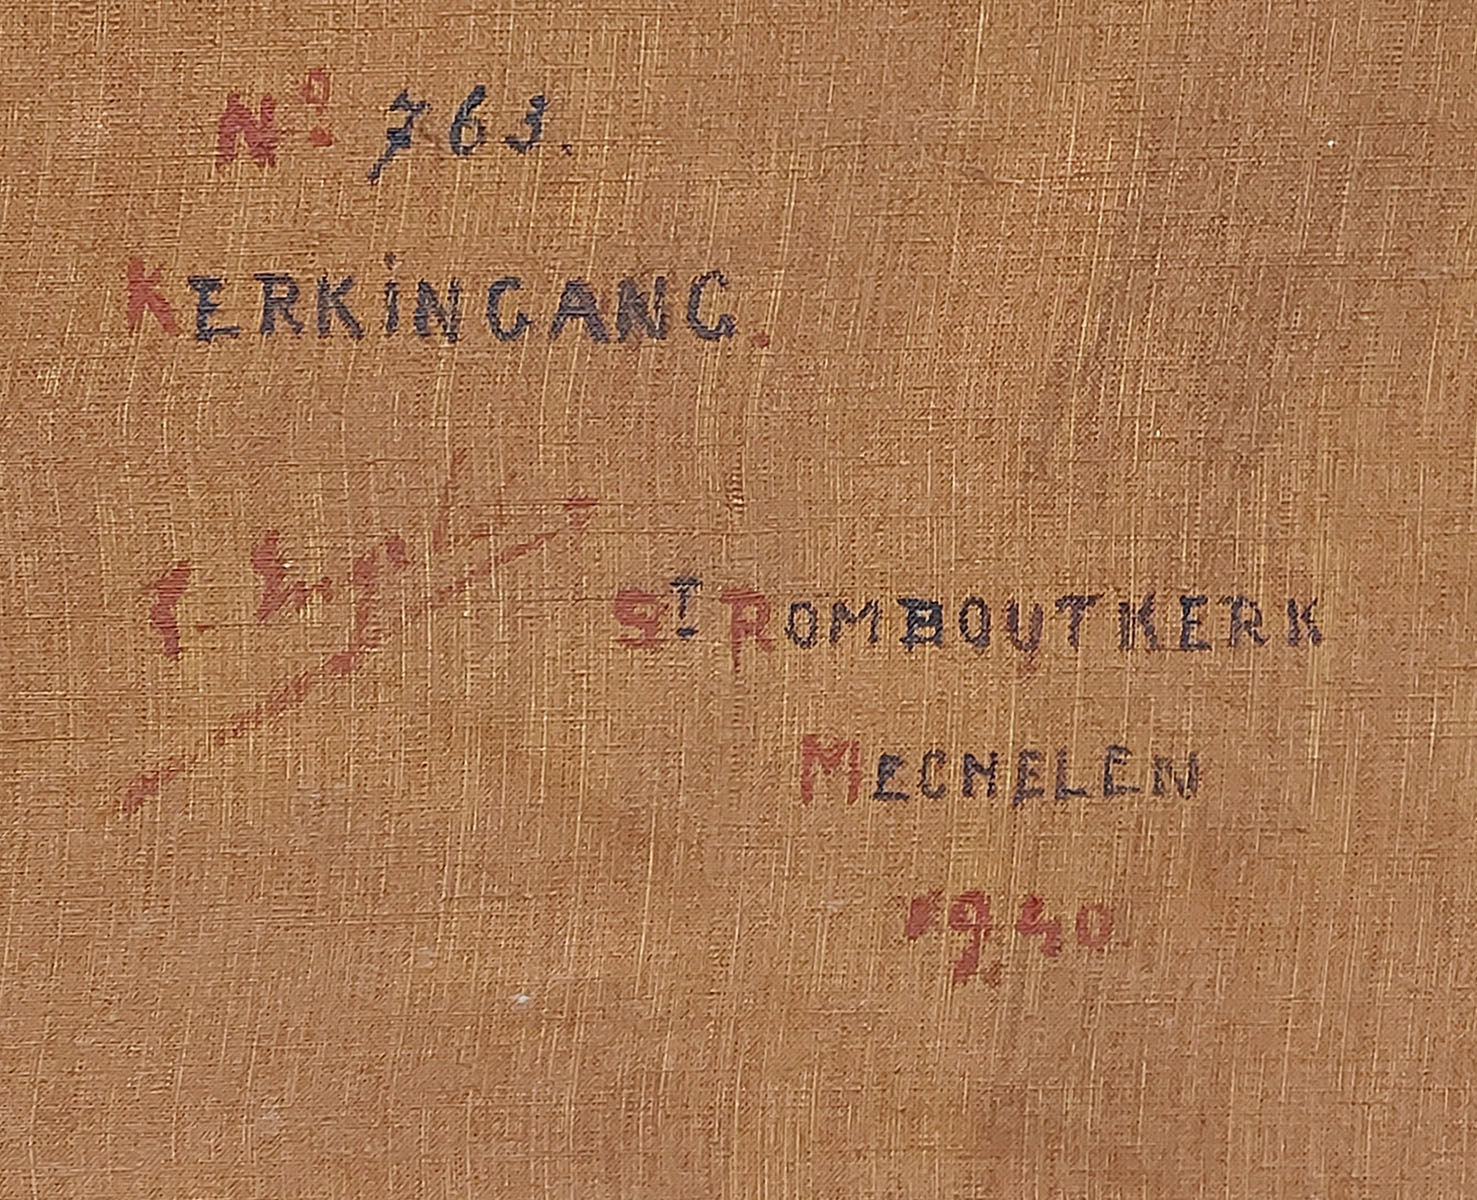 Nº 763.
KERKINGANG.
ST ROMBOUTKERK
MECHELEN
1940